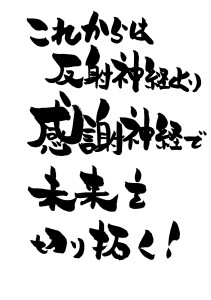 これからは
反射神経より
感謝神経で
未来を
切り拓く！